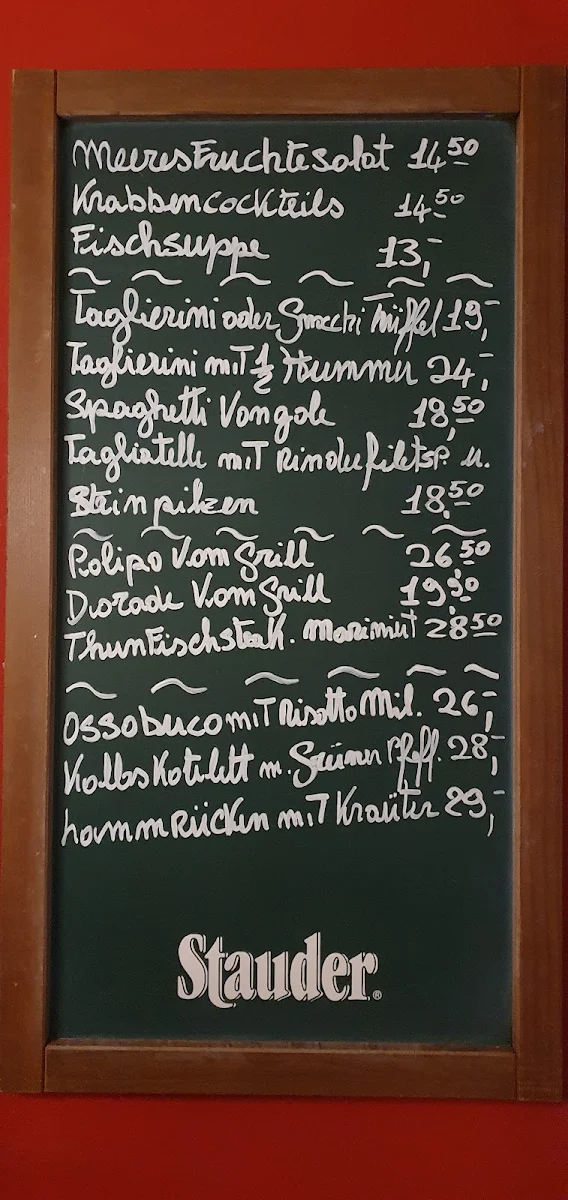 MeeresFruchtesalat 14,50
Krabbencocktails 14,50
Fischsuppe 13,-
Taglierini oder Gnocchi Trüffel 19,-
Taglierini mit 1/2 Hummer 24,-
Spaghetti Vongole 18,50
Tagliatelle mit Rinderfiletsp. u.
Steinpilzen 18,50
Polipo Vom Grill 26,50
Dorade Vom Grill 19,50
ThunFischsteak. Mariniert 28,50
Ossobuco mit Risotto Mil. 26,-
Kalbskotelett m. Grüner Pfeff. 28,-
Lammrücken mit Kräuter 29,-
Stauder®